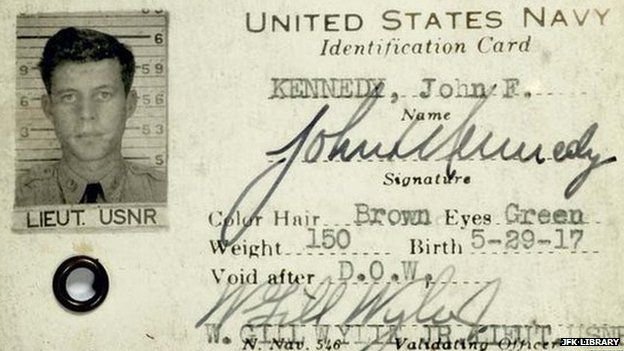 UNITED STATES NAVY
Identification Card
KENNEDY, John F.
Name
John Kennedy
Signature
LIEUT. USNR
Color Hair Brown Eyes Green
Weight 150 Birth 5-29-17
Void after D.O.W.
W. Gill Wylie
W. GILL WYLIE JR. LIEUT USNR
N. Nav. 546 Validating Officer
JFK LIBRARY